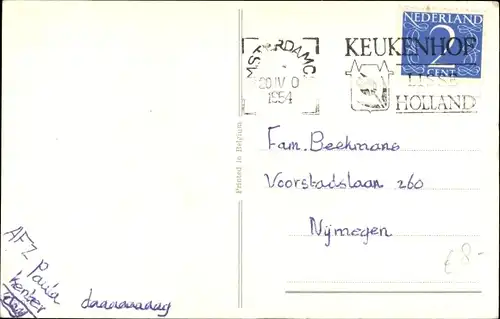 AMSTERDAM C.
20 IV 0
1954
KEUKENHOF
LISSE
HOLLAND
NEDERLAND
2
CENT
Printed in Belgium
Fam. Beekmans
Voorstadslaan 260
Nijmegen
€ 8-
AFZ
Paula
daaaaaaaag